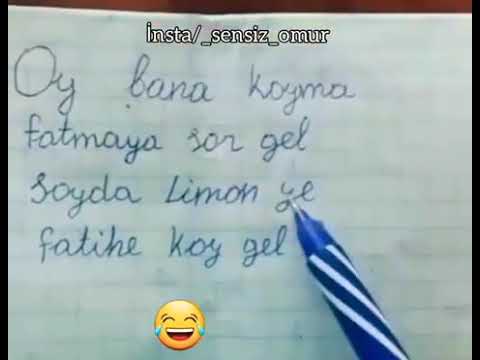 İnsta/_sensiz_omur
Oy bana koyma
fatmaya sor gel
Soyda Limon ye
fatihe koy gel